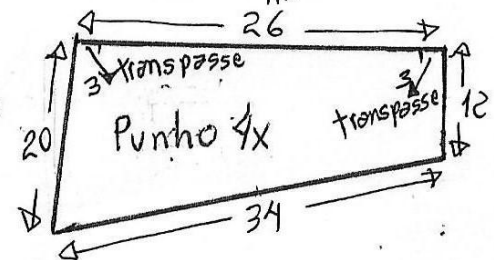 26
3 transpasse
3
transpasse
20
12
Punho 4x
34